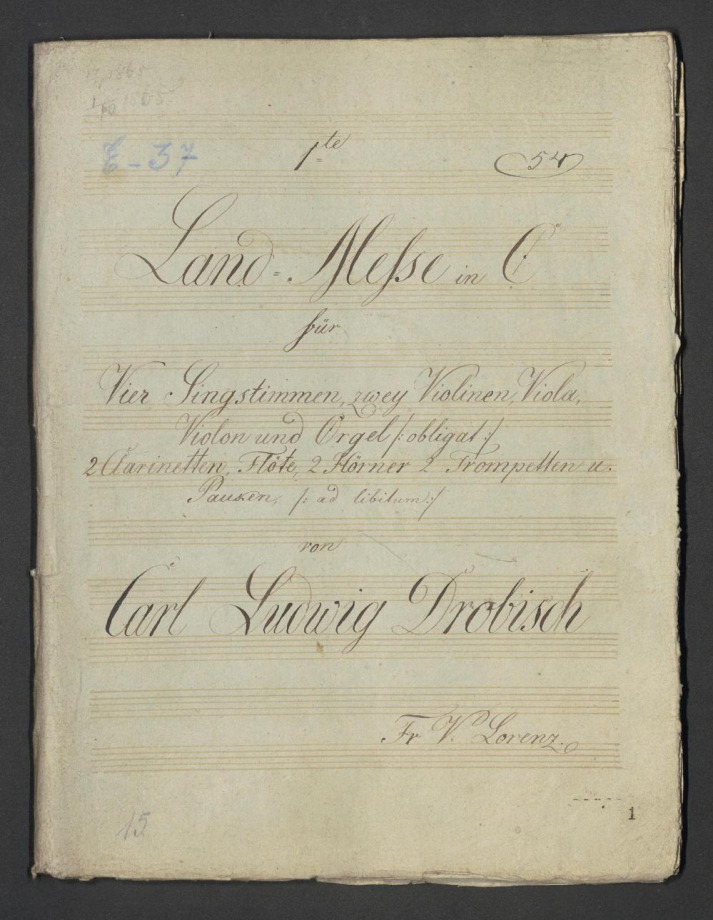 1865
1865
E-37 1te 54
Land=Messe in C
für
Vier Singstimmen, zwey Violinen, Viola,
Violon und Orgel /: obligat :/
2 Clarinetten, Flöte, 2 Hörner 2 Trompetten u.
Pauken, /: ad libitum :/
von
Carl Ludwig Drobisch
Fr V. Lorenz.
1
15